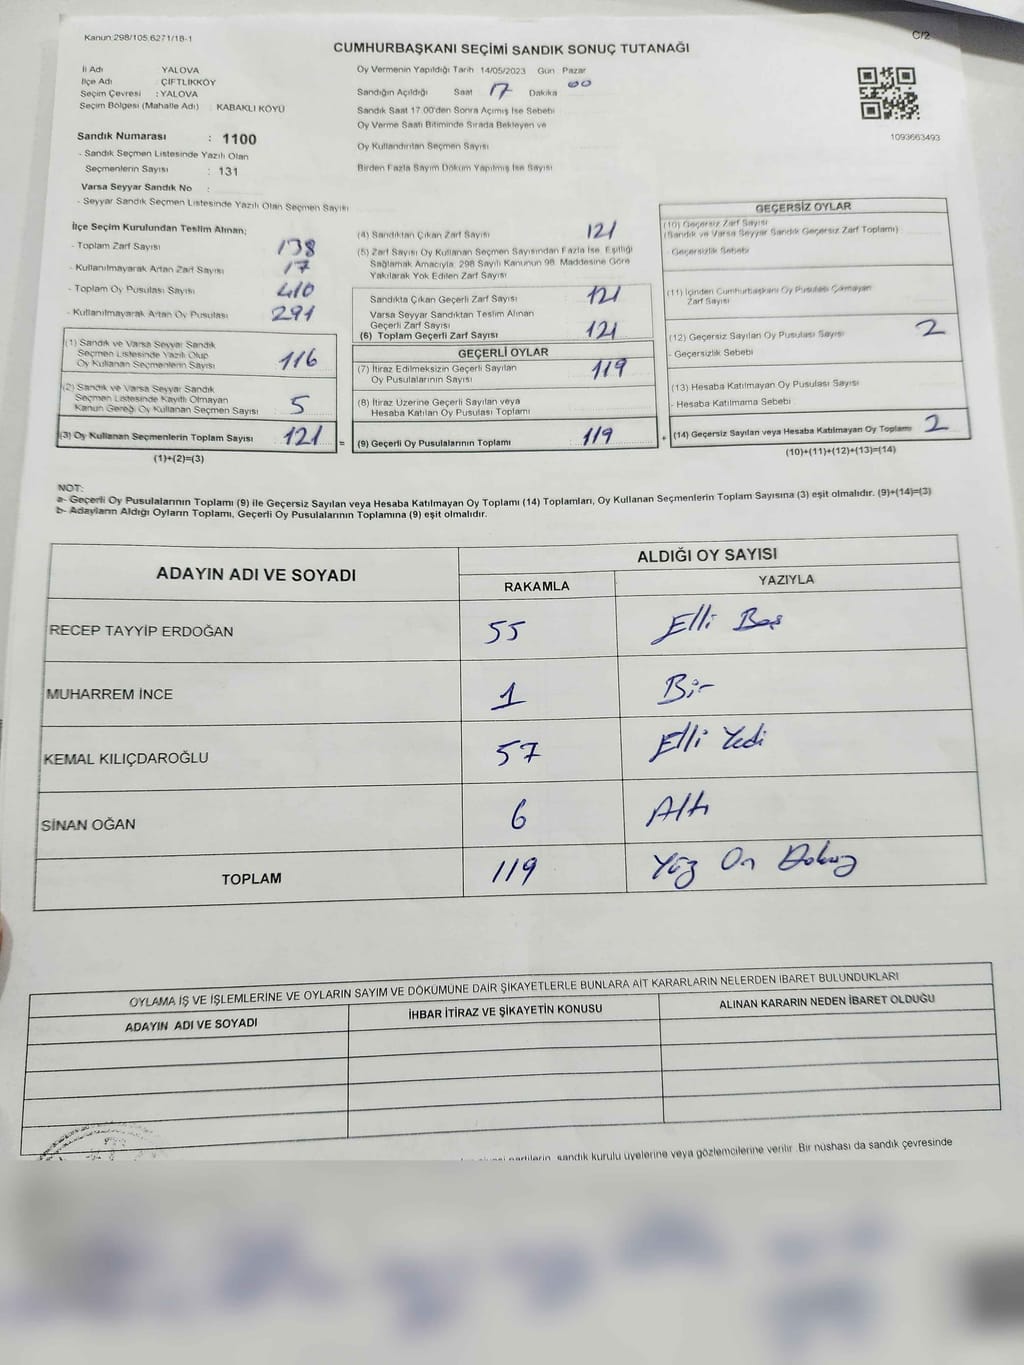 Kanun:298/105,6271/18-1
C/2
CUMHURBAŞKANI SEÇİMİ SANDIK SONUÇ TUTANAĞI
İl Adı YALOVA
İlçe Adı : ÇİFTLİKKÖY
Seçim Çevresi : YALOVA
Seçim Bölgesi (Mahalle Adı) : KABAKLI KÖYÜ
Sandık Numarası : 1100
- Sandık Seçmen Listesinde Yazılı Olan
Seçmenlerin Sayısı : 131
Varsa Seyyar Sandık No :
- Seyyar Sandık Seçmen Listesinde Yazılı Olan Seçmen Sayısı
Oy Vermenin Yapıldığı Tarih 14/05/2023 Gün Pazar
Sandığın Açıldığı Saat 17 Dakika 00
Sandık Saat 17.00'den Sonra Açımış İse Sebebi
Oy Verme Saati Bitiminde Sırada Bekleyen ve
Oy Kullandırılan Seçmen Sayısı
Birden Fazla Sayım Döküm Yapılmış İse Sayısı
1093663493
İlçe Seçim Kurulundan Teslim Alınan;
- Toplam Zarf Sayısı 138
- Kullanılmayarak Artan Zarf Sayısı 17
- Toplam Oy Pusulası Sayısı 410
- Kullanılmayarak Artan Oy Pusulası 291
(1) Sandık ve Varsa Seyyar Sandık
Seçmen Listesinde Yazılı Olup
Oy Kullanan Seçmenlerin Sayısı 116
(2) Sandık ve Varsa Seyyar Sandık
Seçmen Listesinde Kayıtlı Olmayan
Kanun Gereği Oy Kullanan Seçmen Sayısı 5
(3) Oy Kullanan Seçmenlerin Toplam Sayısı 121
(1)+(2)=(3)
(4) Sandıktan Çıkan Zarf Sayısı 121
(5) Zarf Sayısı Oy Kullanan Seçmen Sayısından Fazla İse, Eşitliği
Sağlamak Amacıyla, 298 Sayılı Kanunun 98. Maddesine Göre
Yakılarak Yok Edilen Zarf Sayısı
Sandıkta Çıkan Geçerli Zarf Sayısı 121
Varsa Seyyar Sandıktan Teslim Alınan
Geçerli Zarf Sayısı
(6) Toplam Geçerli Zarf Sayısı 121
GEÇERLİ OYLAR
(7) İtiraz Edilmeksizin Geçerli Sayılan
Oy Pusulalarının Sayısı 119
(8) İtiraz Üzerine Geçerli Sayılan veya
Hesaba Katılan Oy Pusulası Toplamı
= (9) Geçerli Oy Pusulalarının Toplamı 119
GEÇERSİZ OYLAR
(10) Geçersiz Zarf Sayısı
(Sandık ve Varsa Seyyar Sandık Geçersiz Zarf Toplamı)
- Geçersizlik Sebebi
(11) İçinden Cumhurbaşkanı Oy Pusulası Çıkmayan
Zarf Sayısı
(12) Geçersiz Sayılan Oy Pusulası Sayısı 2
- Geçersizlik Sebebi
(13) Hesaba Katılmayan Oy Pusulası Sayısı
- Hesaba Katılmama Sebebi
+ (14) Geçersiz Sayılan veya Hesaba Katılmayan Oy Toplamı 2
(10)+(11)+(12)+(13)=(14)
NOT:
a- Geçerli Oy Pusulalarının Toplamı (9) ile Geçersiz Sayılan veya Hesaba Katılmayan Oy Toplamı (14) Toplamları, Oy Kullanan Seçmenlerin Toplam Sayısına (3) eşit olmalıdır. (9)+(14)=(3)
b- Adayların Aldığı Oyların Toplamı, Geçerli Oy Pusulalarının Toplamına (9) eşit olmalıdır.
ADAYIN ADI VE SOYADI
ALDIĞI OY SAYISI
RAKAMLA YAZIYLA
RECEP TAYYİP ERDOĞAN 55 Elli Beş
MUHARREM İNCE 1 Bir
KEMAL KILIÇDAROĞLU 57 Elli Yedi
SİNAN OĞAN 6 Altı
TOPLAM 119 Yüz On Dokuz
OYLAMA İŞ VE İŞLEMLERİNE VE OYLARIN SAYIM VE DÖKÜMÜNE DAİR ŞİKAYETLERLE BUNLARA AİT KARARLARIN NELERDEN İBARET BULUNDUKLARI
ADAYIN ADI VE SOYADI İHBAR İTİRAZ VE ŞİKAYETİN KONUSU ALINAN KARARIN NEDEN İBARET OLDUĞU
partilerin, sandık kurulu üyelerine veya gözlemcilerine verilir. Bir nüshası da sandık çevresinde